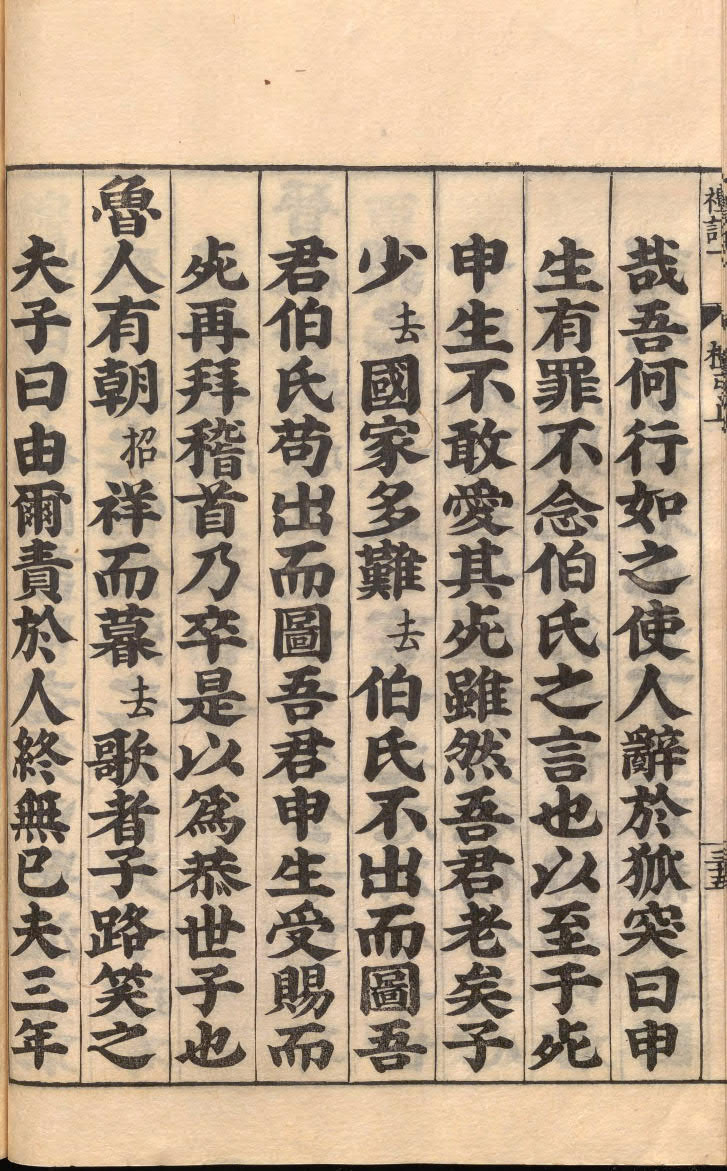 哉吾何行如之使人辭於狐突曰申
生有罪不念伯氏之言也以至于死
申生不敢愛其死雖然吾君老矣子
少去國家多難去伯氏不出而圖吾
君伯氏苟出而圖吾君申生受賜而
死再拜稽首乃卒是以爲恭世子也
魯人有朝招祥而暮去歌者子路笑之
夫子曰由爾責於人終無已夫三年